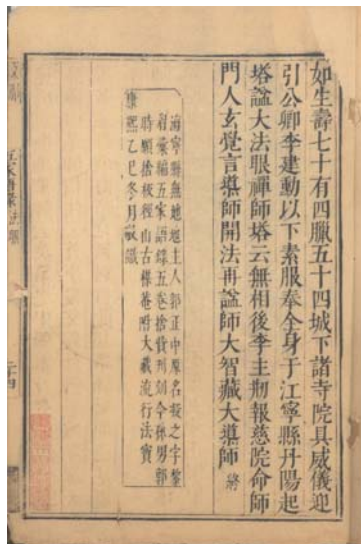 如生壽七十有四臘五十四城下諸寺院具威儀迎
引公卿李建勳以下素服奉全身于江寧縣丹陽起
塔諡大法眼禪師塔云無相後李主剏報慈院命師
門人玄覺言導師開法再諡師大智藏大導師 終
海寧縣無地地主人郭正中原名凝之字黎
眉彙編五家語錄五卷捨貲刊刻令孫男郭
時願捨板徑山古梅菴附大藏流行法寶
康熙乙巳冬月敬識